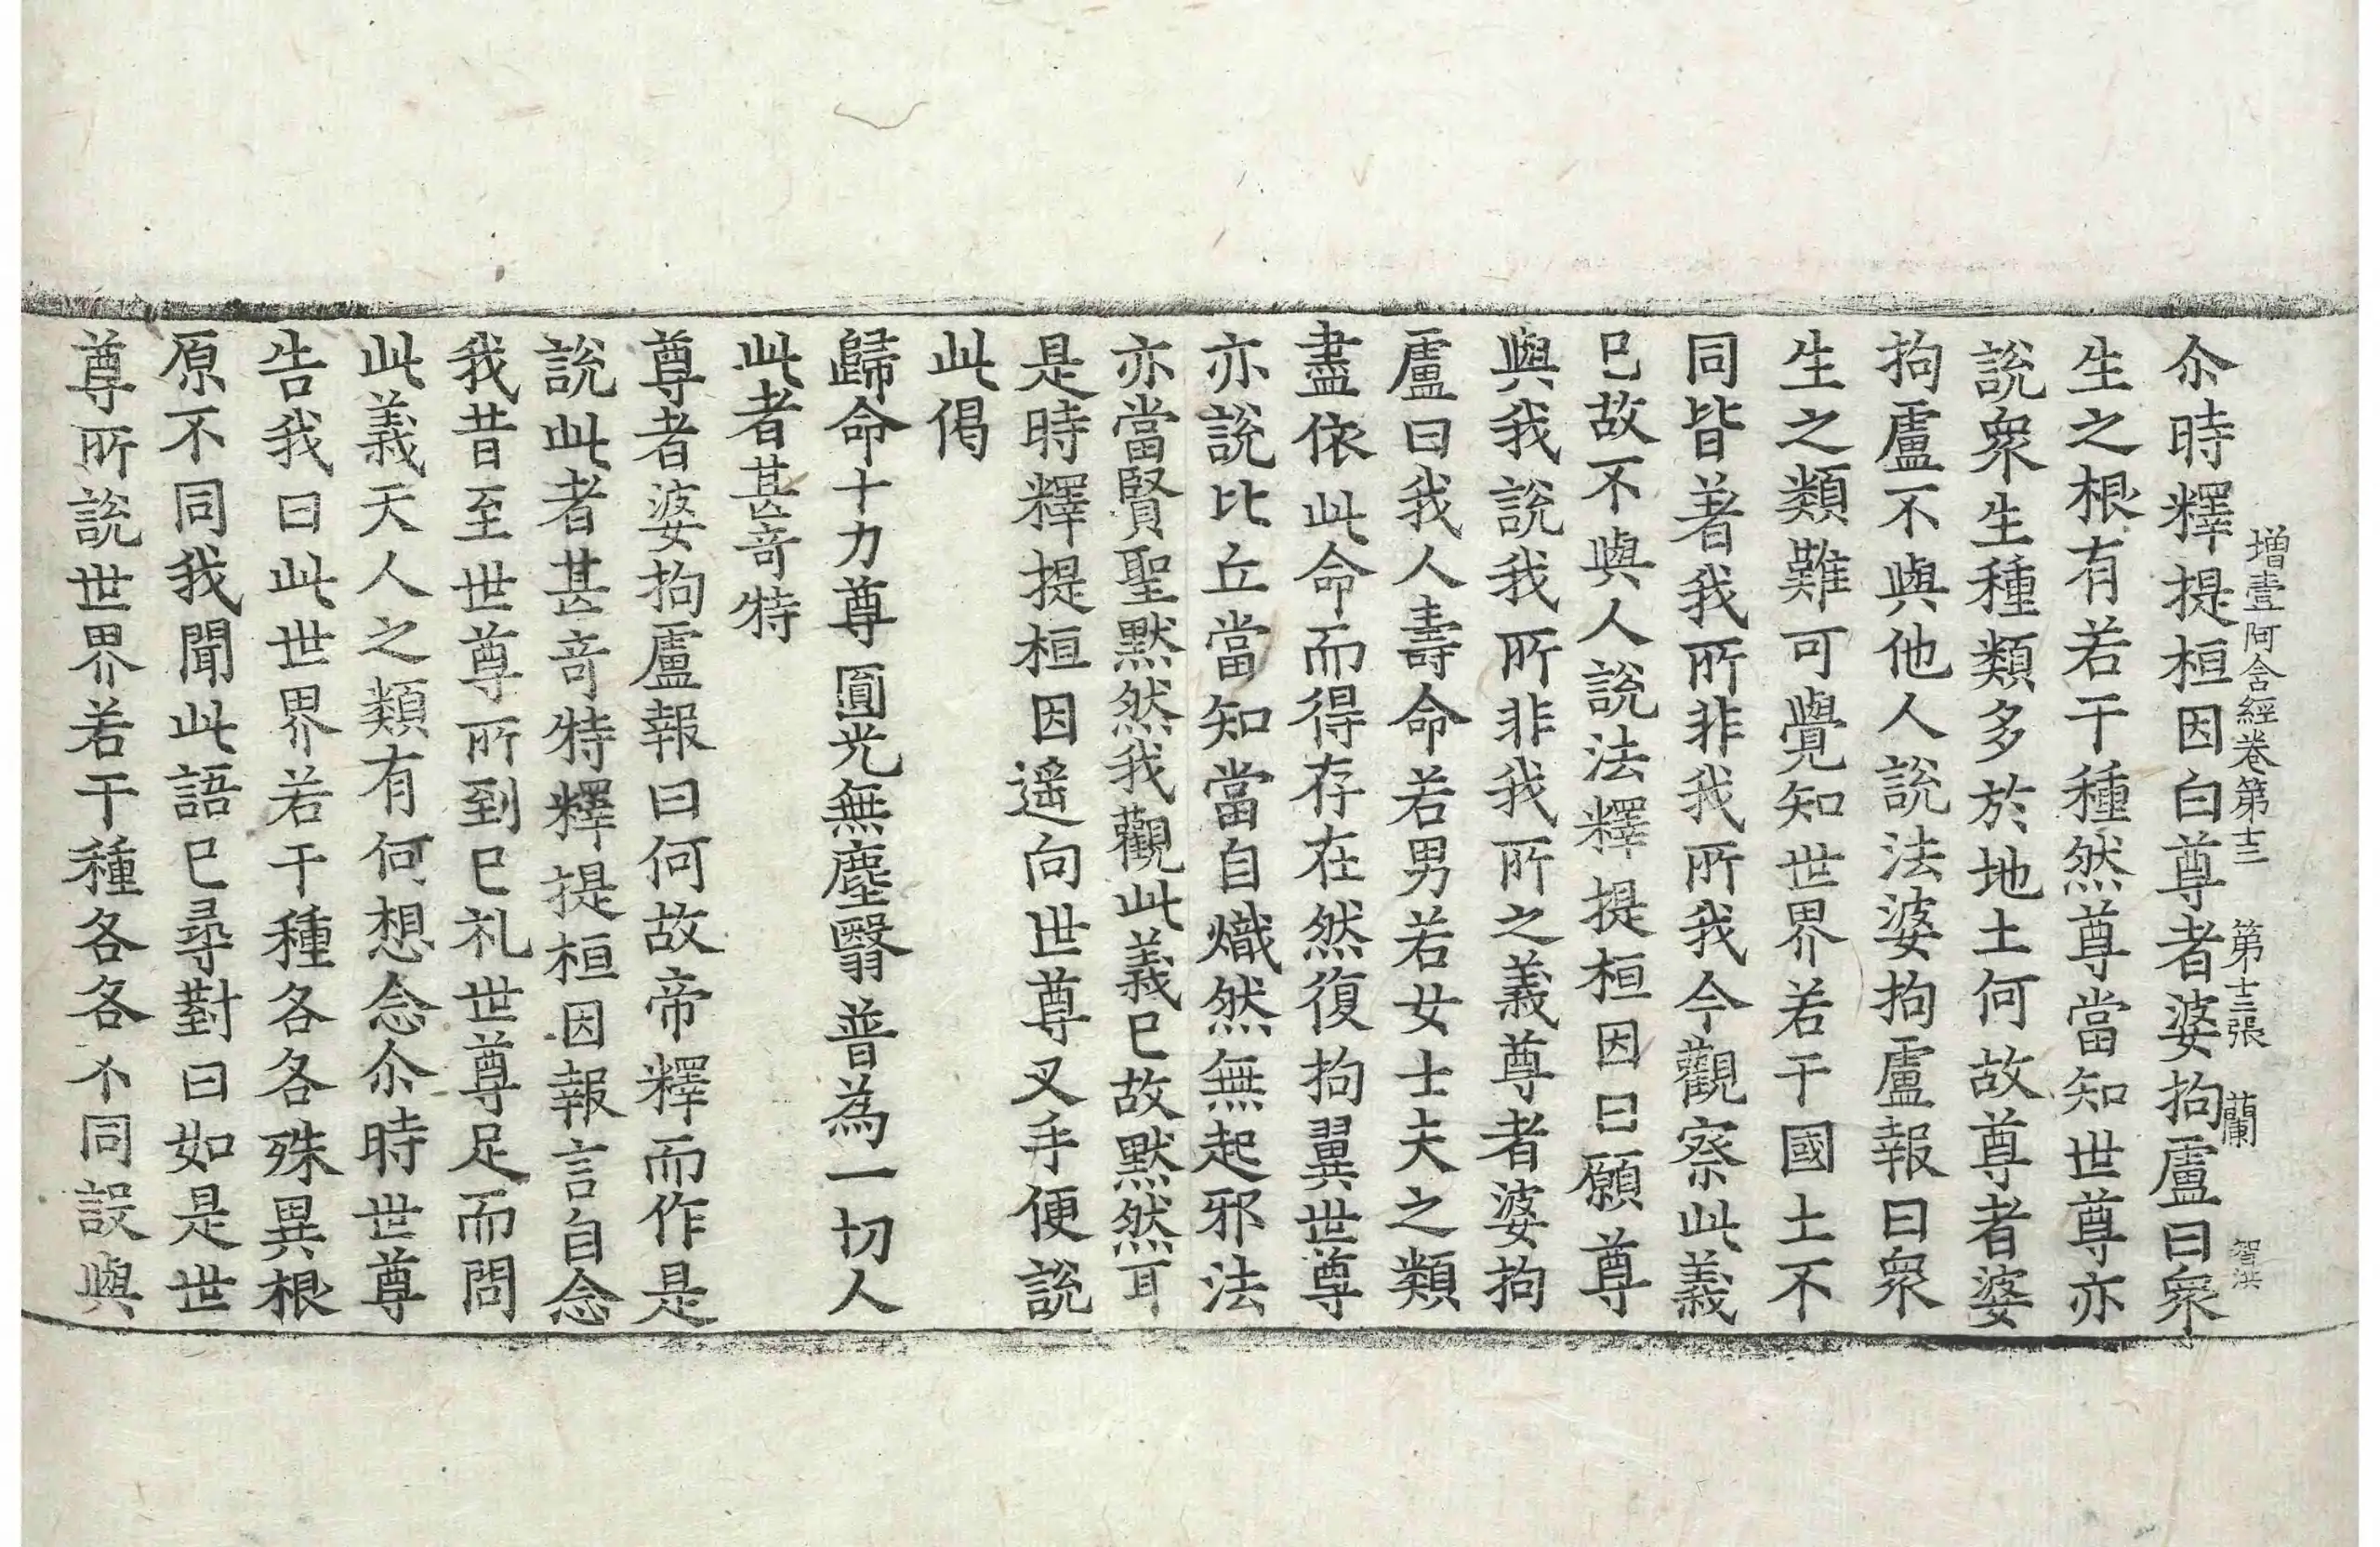 增壹阿含經卷第十三 第十三張 蘭 智洪
尒時釋提桓因白尊者婆拘盧曰衆
生之根有若干種然尊當知世尊亦
說衆生種類多於地土何故尊者婆
拘盧不與他人說法婆拘盧報曰衆
生之類難可覺知世界若干國土不
同皆著我所非我所我今觀察此義
已故不與人說法釋提桓因曰願尊
與我說我所非我所之義尊者婆拘
盧曰我人壽命若男若女士夫之類
盡依此命而得存在然復拘翼世尊
亦說比丘當知當自熾然無起邪法
亦當賢聖默然我觀此義已故默然耳
是時釋提桓因遥向世尊叉手便說
此偈
歸命十力尊 圓光無塵翳 普為一切人
此者甚奇特
尊者婆拘盧報曰何故帝釋而作是
說此者甚奇特釋提桓因報言自念
我昔至世尊所到已礼世尊足而問
此義天人之類有何想念尒時世尊
告我曰此世界若干種各各殊異根
原不同我聞此語已尋對曰如是世
尊所說世界若干種各各不同設與